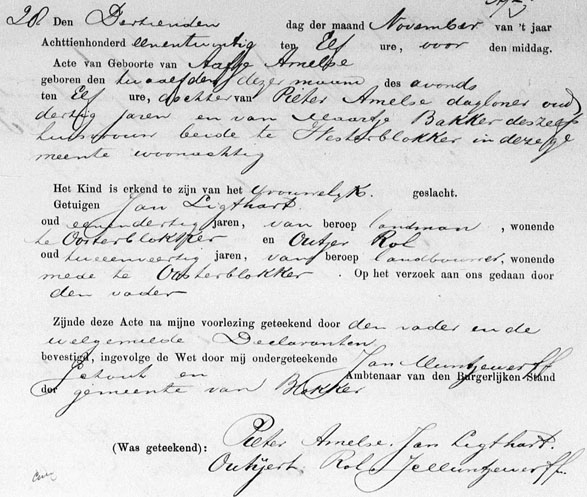 28. Den Dertienden dag der maand November van 't jaar
Achttienhonderd eenentwintig ten Elf ure, voor den middag.
Acte van Geboorte van Aafje Amelse
geboren den twaalfden dezer maand des avonds
ten Elf ure, dochter van Pieter Amelse dagloner oud
dertig jaren en van Maartje Bakker deszelfs
huisvrouw beide te Westerblokker in deze ge
meente woonachtig
Het Kind is erkend te zijn van het vrouwelijk. geslacht.
Getuigen Jan Ligthart.
oud eenendertig jaren, van beroep landman, wonende
te Oosterblokker en Outjer Rol
oud tweeenveertig jaren, van beroep landbouwer, wonende
mede te Oosterblokker. Op het verzoek aan ons gedaan door
den vader
Zijnde deze Acte na mijne voorlezing geteekend door den vader en de
welgemelde Declaranten
bevestigd, ingevolge de Wet door mij ondergeteekende Jan Muntjewerff
Schout en Ambtenaar van den Burgerlijken Stand
der gemeente van Blokker
(Was geteekend): Pieter Amelse. Jan Ligthart.
Outjert Rol. J Muntjewerff.